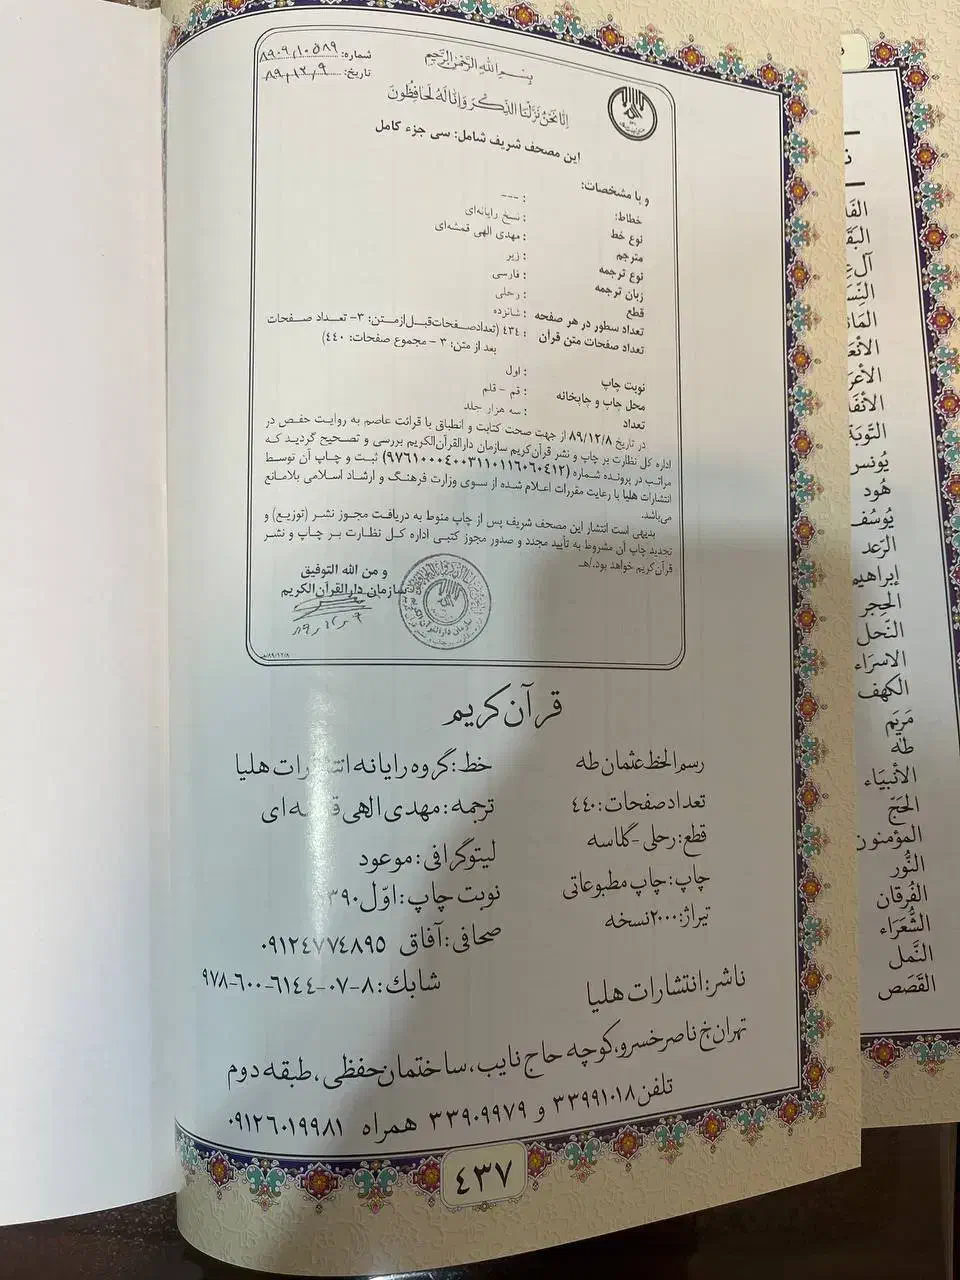 بِسْمِ اللهِ الرَّحْمنِ الرَّحيمِ
شماره: ۸۹۰۹/۱۰۵۸۹
تاریخ: ۸۹/۱۲/۹
اِنّا نَحْنُ نَزَّلْنَا الذِّكْرَ وَ اِنّا لَهُ لَحافِظُونَ
این مصحف شریف شامل: سی جزء کامل
و با مشخصات:
خطاط: : ---
نوع خط : نسخ رایانه‌ای
مترجم : مهدی الهی قمشه‌ای
نوع ترجمه : زیر
زبان ترجمه : فارسی
قطع : رحلی
تعداد سطور در هر صفحه : شانزده
تعداد صفحات متن قرآن : ٤٣٤ (تعداد صفحات قبل از متن: ٣- تعداد صفحات
بعد از متن: ٣ - مجموع صفحات: ٤٤٠)
نوبت چاپ : اول
محل چاپ و چاپخانه : قم - قلم
تعداد : سه هزار جلد
در تاریخ ۸۹/۱۲/۸ از جهت صحت کتابت و انطباق با قرائت عاصم به روایت حفص در
اداره کل نظارت بر چاپ و نشر قرآن‌کریم سازمان دارالقرآن‌الکریم بررسی و تصحیح گردید که
مراتب در پرونده شماره (۹۷۶۱۰۰۰۴۰۰۳۱۱۰۱۱۶۰۶۰۴۱۲) ثبت و چاپ آن توسط
انتشارات هلیا با رعایت مقررات اعلام شده از سوی وزارت فرهنگ و ارشاد اسلامی بلامانع
می‌باشد.
بدیهی است انتشار این مصحف شریف پس از چاپ منوط به دریافت مجوز نشر (توزیع) و
تجدید چاپ آن مشروط به تأیید مجدد و صدور مجوز کتبی اداره کل نظارت بر چاپ و نشر
قرآن‌کریم خواهد بود./هـ
و من الله التوفیق
سازمان دارالقرآن الکریم
قرآن کریم
رسم الخط عثمان طه خط: گروه رایانه انتشارات هلیا
تعداد صفحات: ٤٤٠ ترجمه: مهدی الهی قمشه ای
قطع: رحلی - گلاسه لیتوگرافی: موعود
چاپ: چاپ مطبوعاتی نوبت چاپ: اوّل ۳۹۰
تیراژ: ۲۰۰۰ نسخه صحافی: آفاق ۰۹۱۲٤۷۷٤۸۹۵
ناشر: انتشارات هلیا شابك: ۸-۰۷-٦۱٤٤-٦۰۰-۹۷۸
تهران خ ناصر خسرو، کوچه حاج نایب، ساختمان حفظی، طبقه دوم
تلفن ۳۳۹۹۱۰۱۸ و ۳۳۹۰۹۹۷۹ همراه ۰۹۱۲٦۰۱۹۹۸۱
٤٣٧
آل
الأنعَ
التوبَة
يُونس
هُود
يُوسُف
الرّعد
إبراهيم
الحِجر
النّحل
الاسرَاء
الكهف
مَريَم
طه
الأنبيَاء
الحَجّ
المؤمنون
النُّور
الفُرقان
الشُّعَرَاء
النَّمل
القَصَص